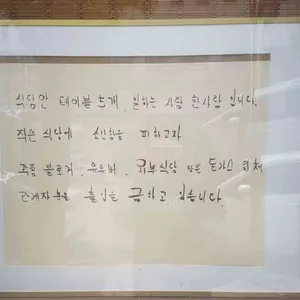 식당안 테이블 5개, 일하는 사람 한사람 입니다.
작은 식당에 손님들을 피하고자
각종 블로거, 유튜버, 외부식당 다른 돈가스 업체
관계자분들 출입을 금하고 있습니다.